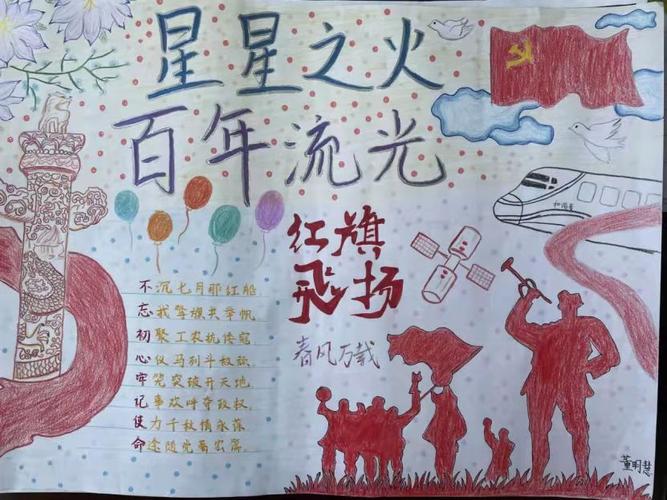 星星之火
百年流光
红旗
飞扬
春风万载
不沉七月那红船
忘我擎旗共举帆
初聚工农抗倭寇
心仪马列斗
牢笼突破开天地
记事欢呼夺政权
使力千秋情永
命途随党看宏篇
和谐号
董明慧